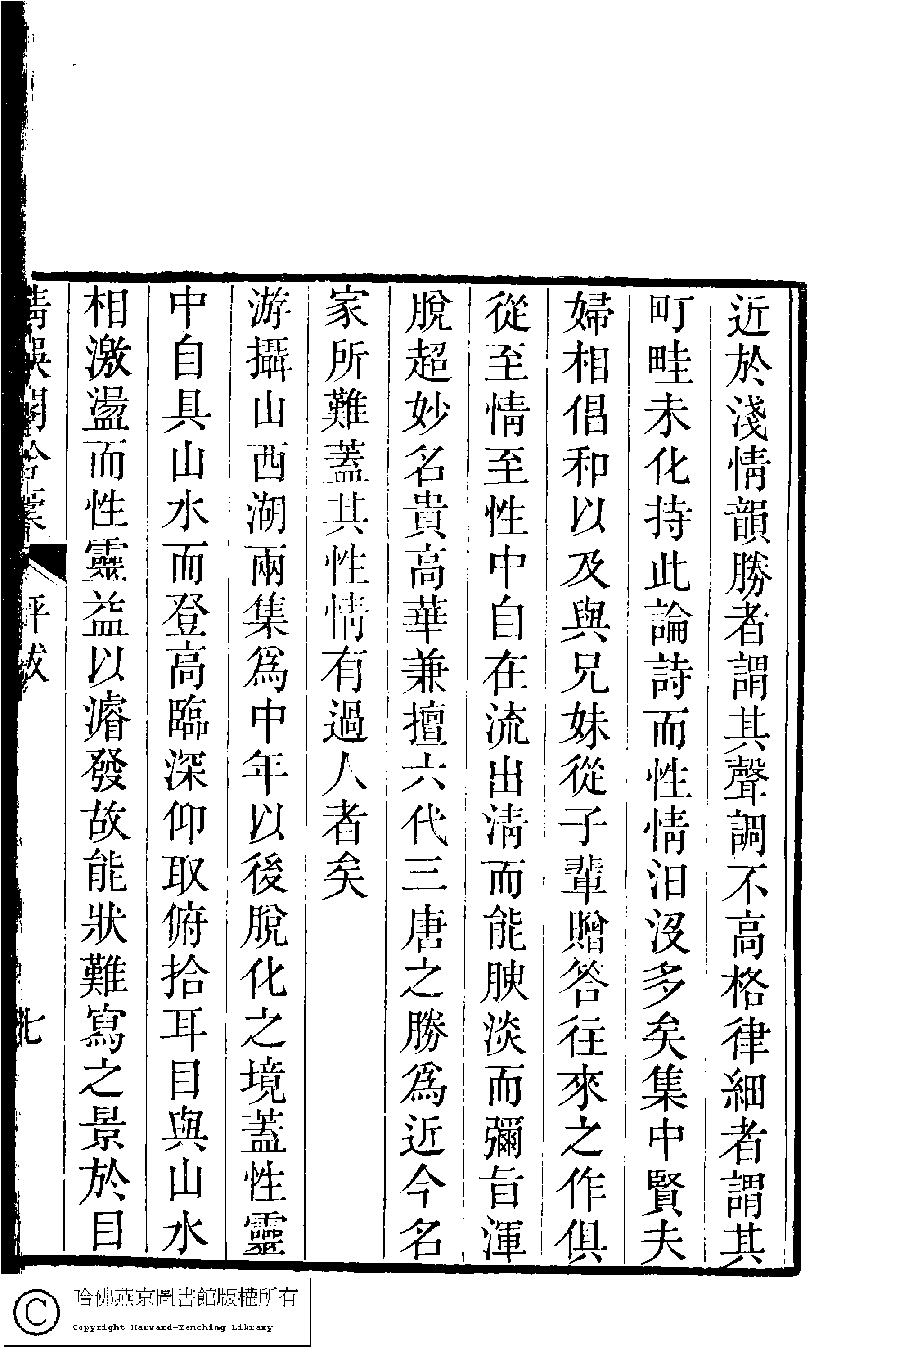 近於淺情韻勝者謂其聲調不高格律細者謂其
町畦未化持此論詩而性情汨沒多矣集中賢夫
婦相倡和以及與兄妹從子輩贈答往來之作俱
從至情至性中自在流出淸而能腴淡而彌旨渾
脫超妙名貴高華兼擅六代三唐之勝爲近今名
家所難蓋其性情有過人者矣
游攝山西湖兩集爲中年以後脫化之境蓋性靈
中自具山水而登高臨深仰取俯拾耳目與山水
相激盪而性靈益以濬發故能狀難寫之景於目
評跋
七
哈佛燕京圖書館版權所有
Copyright Harvard-Yenching Library